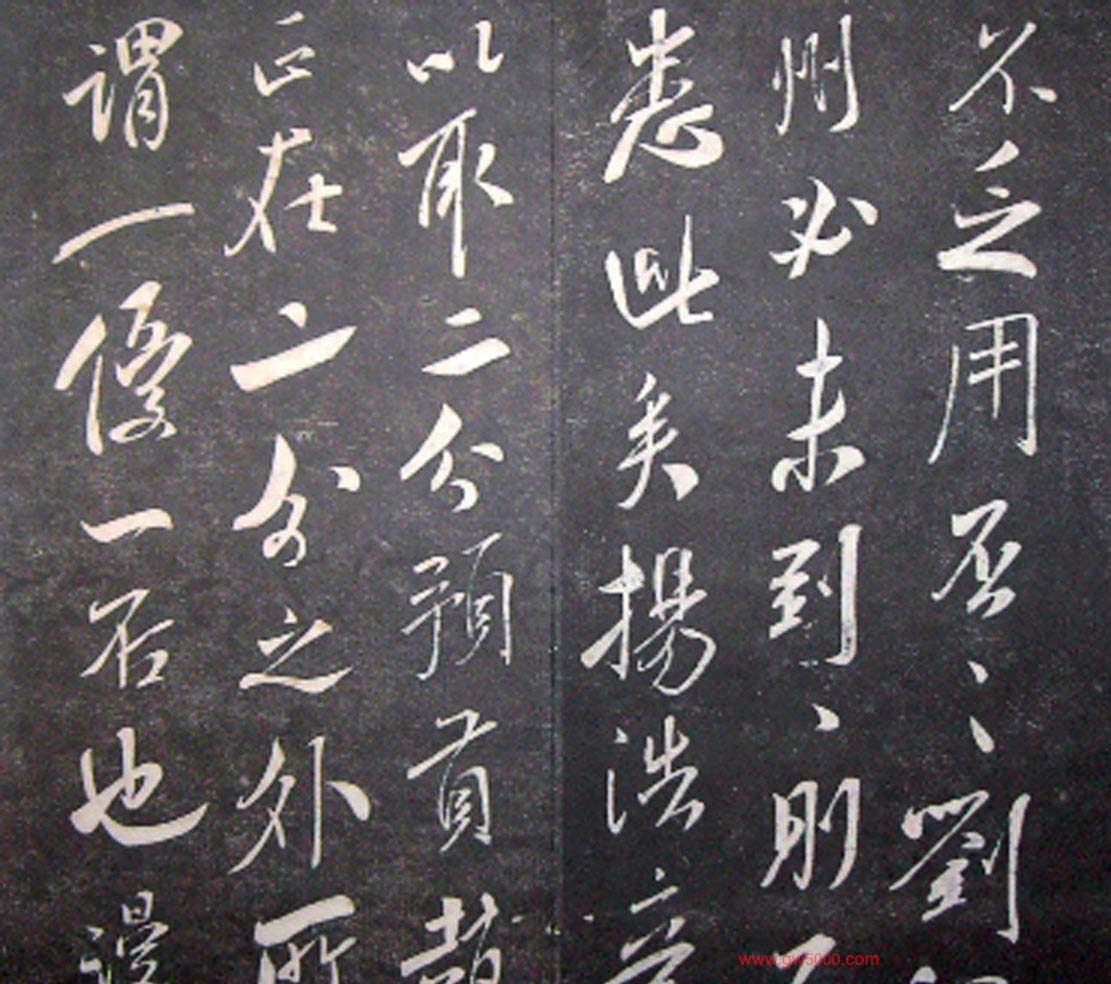 不乏用否、、劉
州必未到、則
悉此矣揚浩
以取二分預
正在二分之外所
謂一優一否也漫
www.gw5000.com